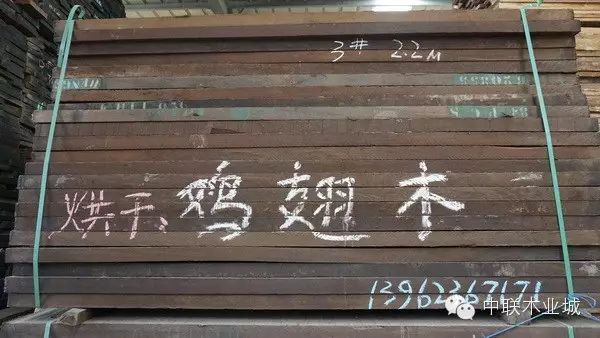 3# 2.2M
烘干、鸡翅木
13962367171
中联木业城